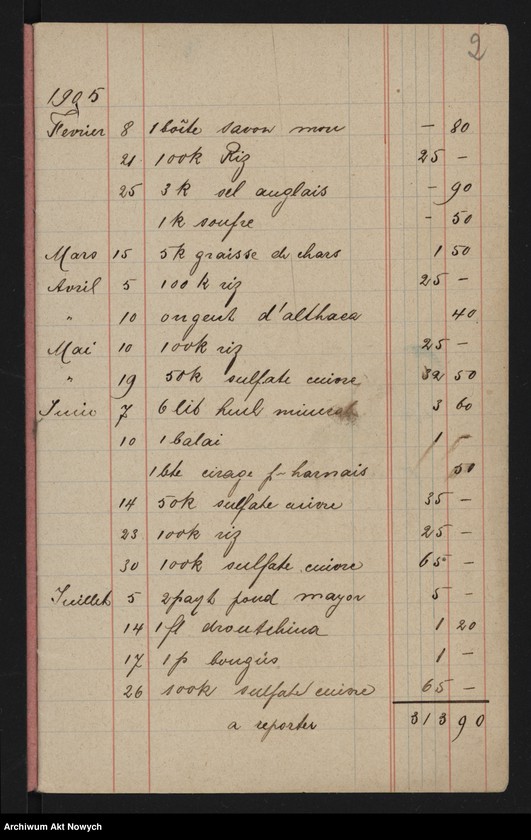 2
1905
Fevrier 8 1 boîte savon mou — 80
21 100k Riz 25 —
25 3 k sel anglais — 90
1k soufre - 50
Mars 15 5k graisse de chars 1 50
Avril 5 100 k riz 25 —
" 10 ongent d'althaea 40
Mai 10 100k riz 25 —
" 19 50k sulfate cuivre 32 50
Juin 7 6 lit huil mineral 3 60
10 1 balai 1
1 bte cirage p harnais 50
14 50k sulfate cuivre 35 —
23 100k riz 25 —
30 100k sulfate cuivre 65 —
Juillet 5 2 payt poud mayor 5 —
14 1 fl 1 20
17 1 p bougies 1 —
26 100k sulfate cuivre 65 —
a reporter 313 90
Archiwum Akt Nowych